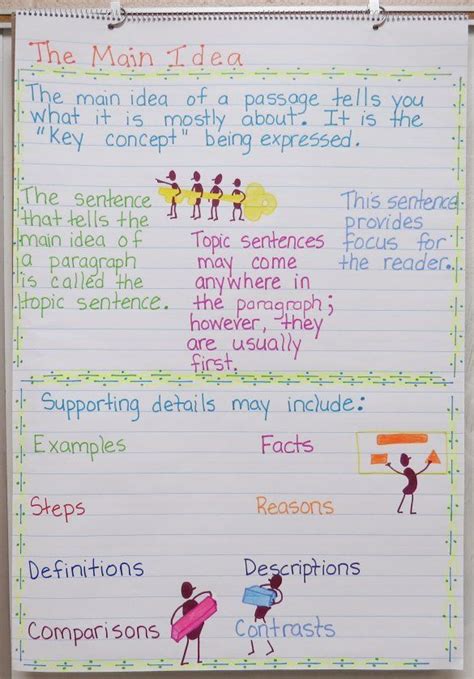 The Main Idea
The main idea of a passage tells you
what it is mostly about. It is the
"Key concept" being expressed.
The sentence
that tells the
main idea of
a paragraph
is called the
topic sentence.
Topic sentences
may come
anywhere in
the paragraph;
however, they
are usually
first.
This sentence
provides
focus for
the reader.
Supporting details may include:
Examples
Facts
Steps
Reasons
Definitions
Descriptions
Comparisons
Contrasts